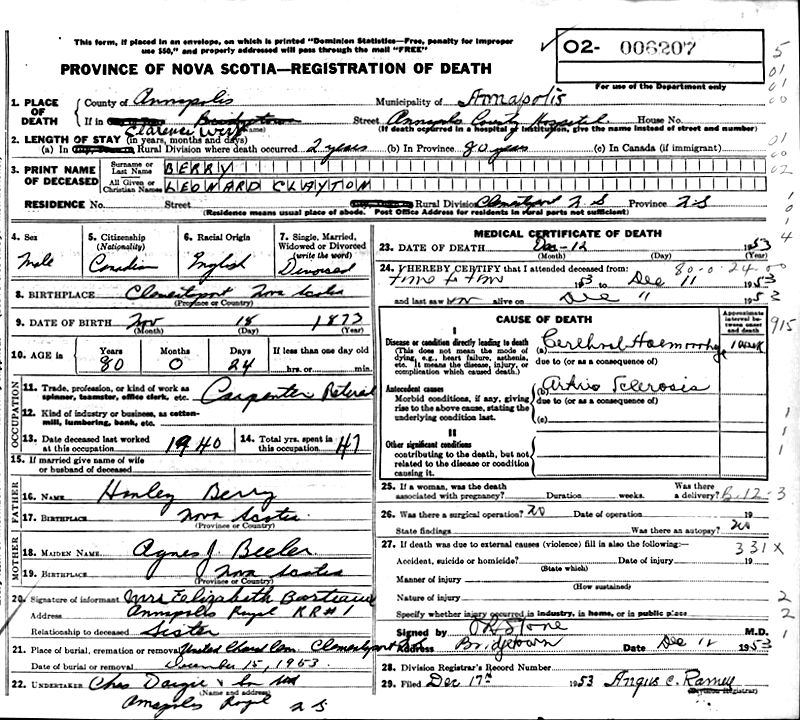 This form, if placed in an envelope, on which is printed "Dominion Statistics—Free, penalty for improper
use $50," and properly addressed will pass through the mail "FREE"
02- 006207
For use of the Department only
PROVINCE OF NOVA SCOTIA—REGISTRATION OF DEATH
1. PLACE OF DEATH County of Annapolis Municipality of Annapolis
If in Bridgetown Street Annapolis County Hospital House No.
Clarence West (Name) (If death occurred in a hospital or institution, give the name instead of street and number)
2. LENGTH OF STAY (in years, months and days)
(a) In Rural Division where death occurred 2 years (b) In Province 80 years (c) In Canada (if immigrant)
3. PRINT NAME OF DECEASED Surname or Last Name BERRY
All Given or Christian Names LEONARD CLAYTON
RESIDENCE No. Street Rural Division Clementsport N S Province N S
(Residence means usual place of abode. Post Office Address for residents in rural parts not sufficient)
4. Sex Male
5. Citizenship (Nationality) Canadian
6. Racial Origin English
7. Single, Married, Widowed or Divorced (write the word) Divorced
8. BIRTHPLACE Clementsport Nova Scotia
(Province or Country)
9. DATE OF BIRTH Nov 18 1873
(Month) (Day) (Year)
10. AGE in Years 80 Months 0 Days 24 If less than one day old hrs. or min.
OCCUPATION
11. Trade, profession, or kind of work as spinner, teamster, office clerk, etc. Carpenter Retired
12. Kind of industry or business, as cotton-mill, lumbering, bank, etc.
13. Date deceased last worked at this occupation 1940
14. Total yrs. spent in this occupation 47
15. If married give name of wife or husband of deceased
FATHER
16. NAME Hanley Berry
17. BIRTHPLACE Nova Scotia
(Province or Country)
MOTHER
18. MAIDEN NAME Agnes J. Beeler
19. BIRTHPLACE Nova Scotia
(Province or Country)
20. Signature of informant Mrs Elizabeth
Address Annapolis Royal RR#1
Relationship to deceased Sister
21. Place of burial, cremation or removal United Church Cem. Clementsport NS
Date of burial or removal December 15, 1953
22. UNDERTAKER Chas Dargie & Son Ltd
(Name and address)
Annapolis Royal N S
MEDICAL CERTIFICATE OF DEATH
23. DATE OF DEATH Dec-12 1953
(Month) (Day) (Year)
80-0-24-00
24. I HEREBY CERTIFY that I attended deceased from:
time to time 1953 to Dec 11 1953
and last saw him alive on Dec 11 1953
CAUSE OF DEATH
Approximate interval between onset and death
I
Disease or condition directly leading to death (a) Cerebral Haemorrhage 1 week
(This does not mean the mode of dying, e.g., heart failure, asthenia, etc. It means the disease, injury, or complication which caused death.)
due to (or as a consequence of)
Antecedent causes (b) Arterio Sclerosis
Morbid conditions, if any, giving rise to the above cause, stating the underlying condition last.
due to (or as a consequence of)
(c)
II
Other significant conditions
contributing to the death, but not related to the disease or condition causing it.
25. If a woman, was the death associated with pregnancy? Duration weeks. Was there a delivery?
B.12-3
26. Was there a surgical operation? No Date of operation 19
State findings Was there an autopsy? No
27. If death was due to external causes (violence) fill in also the following:—
331X
Accident, suicide or homicide? Date of injury 19
(State which)
Manner of injury
(How sustained)
Nature of injury
Specify whether injury occurred in industry, in home, or in public place
Signed by Stone M.D.
Address Bridgetown Date Dec 12 1953
28. Division Registrar's Record Number
29. Filed Dec 17th 1953 Angus C.
(Division Registrar)
5
01
01
00
01
00
02
1
0
1
4
915
1
1
1
2
2
1